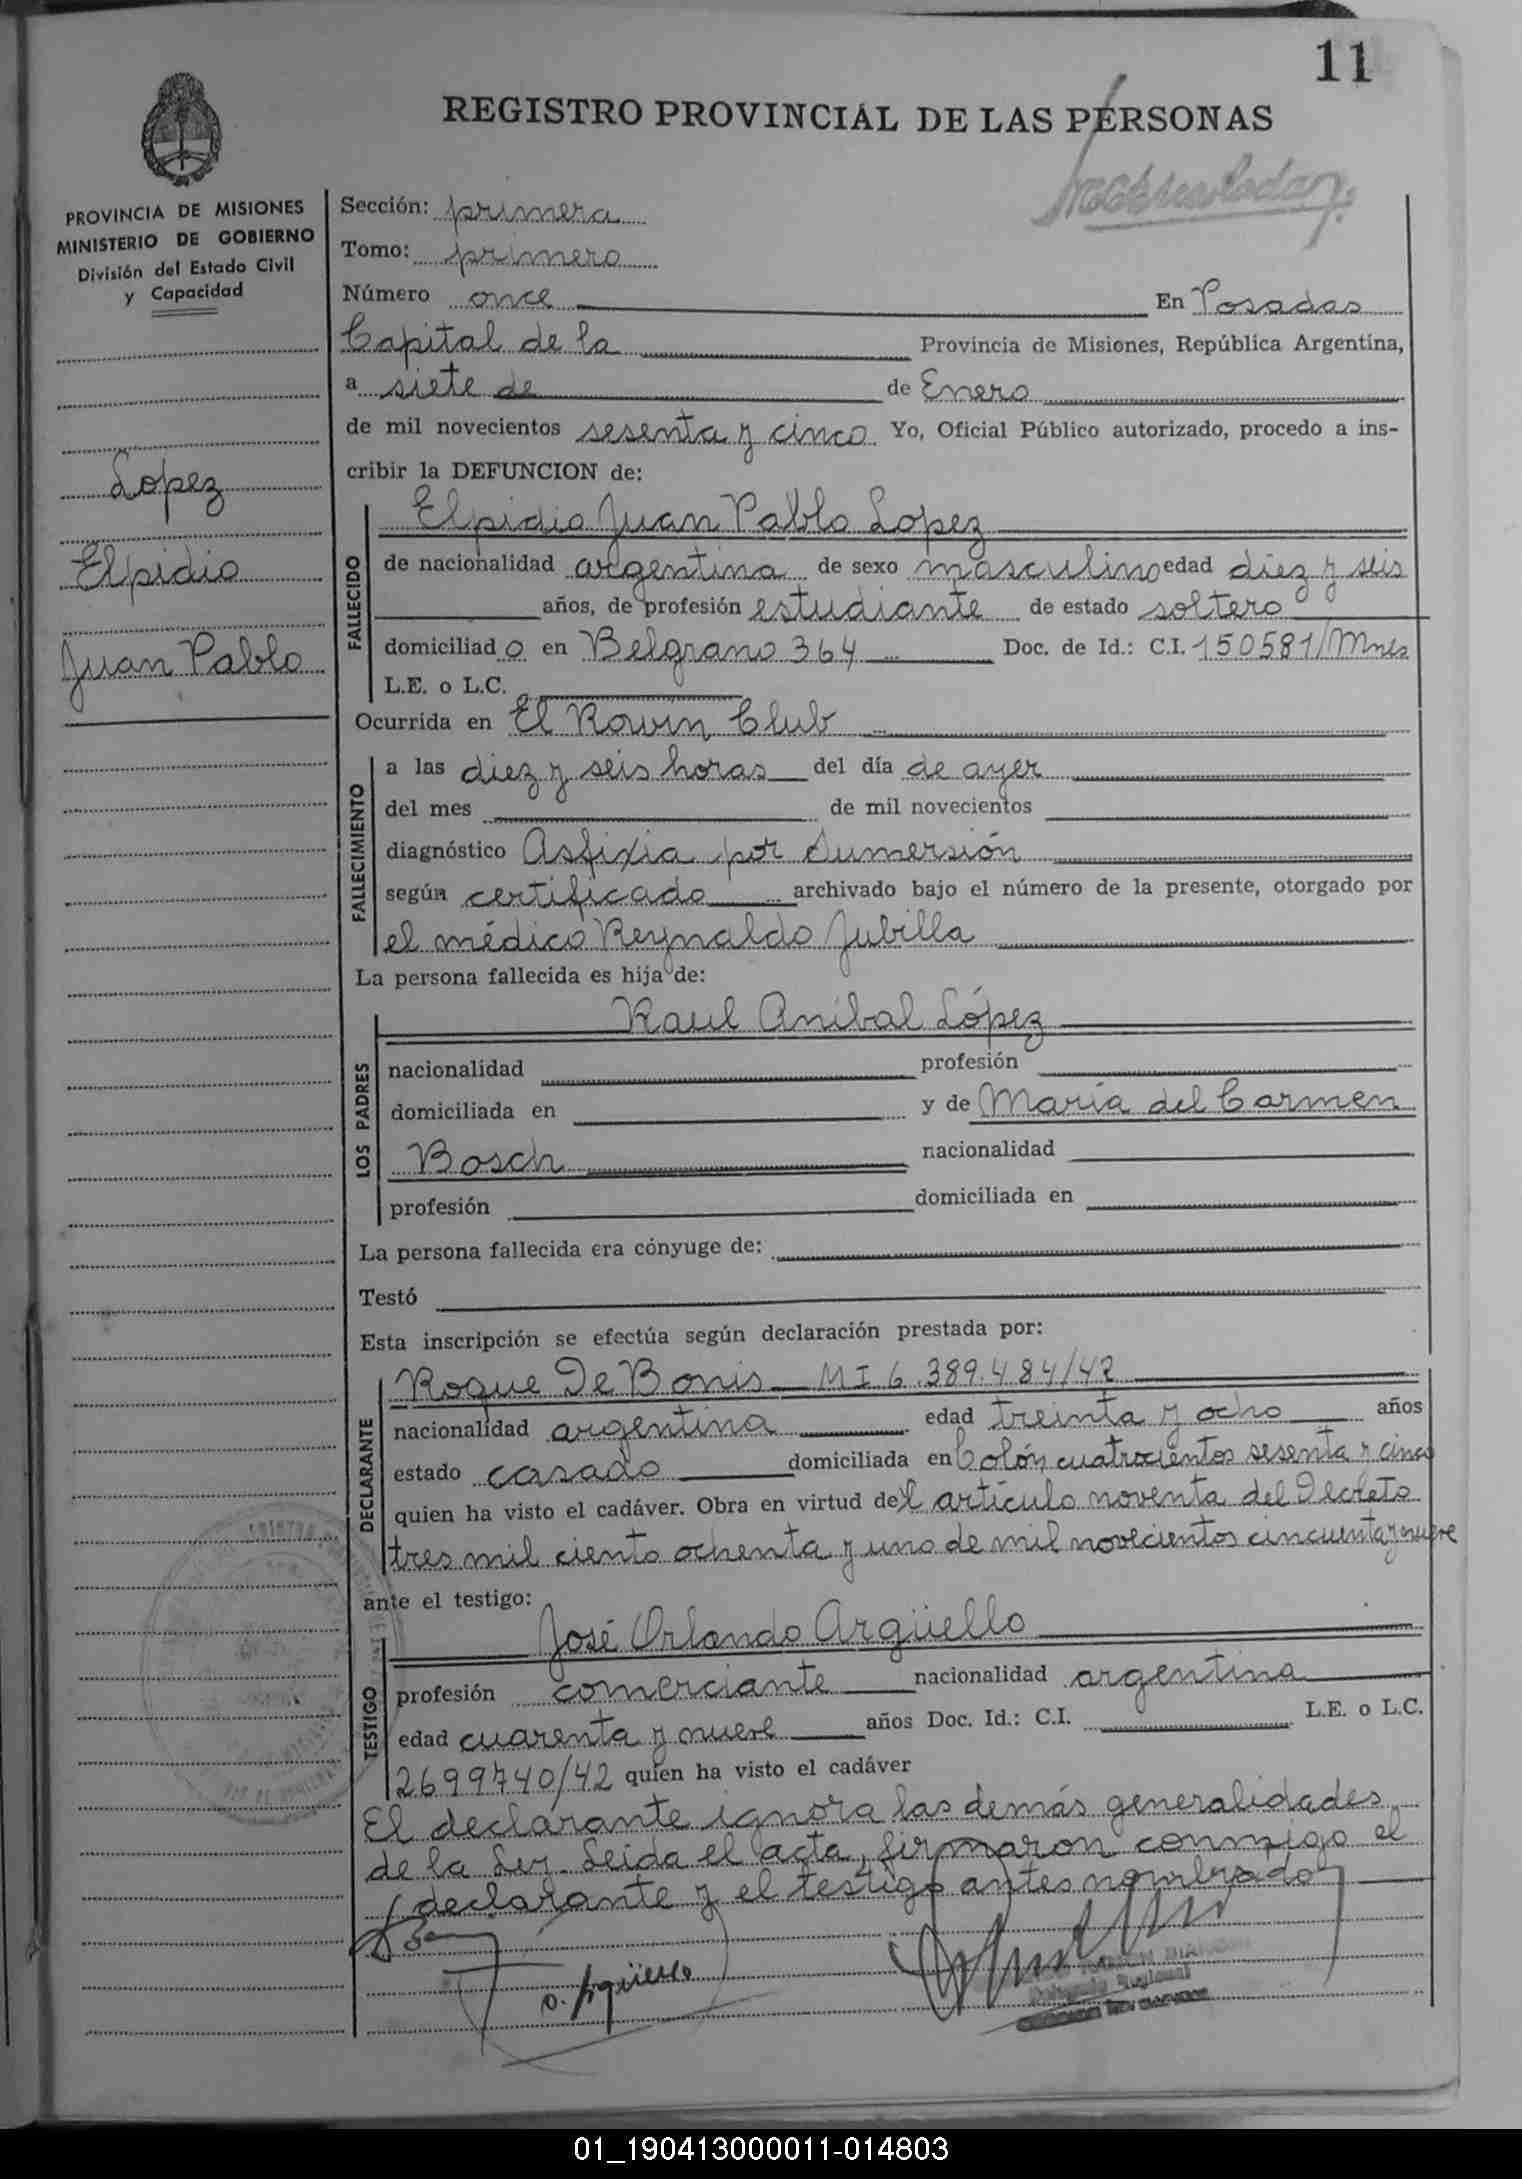 11
REGISTRO PROVINCIAL DE LAS PERSONAS
PROVINCIA DE MISIONES
MINISTERIO DE GOBIERNO
División del Estado Civil
y Capacidad
Lopez
Elpidio
Juan Pablo
Sección: primera
Tomo: primero
Número once En Posadas
Capital de la Provincia de Misiones, República Argentina,
a siete de de Enero
de mil novecientos sesenta y cinco Yo, Oficial Público autorizado, procedo a ins-
cribir la DEFUNCION de:
FALLECIDO
Elpidio Juan Pablo Lopez
de nacionalidad argentina de sexo masculino edad diez y seis
años, de profesión estudiante de estado soltero
domiciliado en Belgrano 364 Doc. de Id.: C.I. 150581/Mnes
L.E. o L.C.
Ocurrida en El Rowin Club
FALLECIMIENTO
a las diez y seis horas del día de ayer
del mes de mil novecientos
diagnóstico Asfixia por sumersión
según certificado archivado bajo el número de la presente, otorgado por
el médico Reynaldo Jubilla
La persona fallecida es hija de:
LOS PADRES
Raul Anibal López
nacionalidad profesión
domiciliada en y de María del Carmen
Bosch nacionalidad
profesión domiciliada en
La persona fallecida era cónyuge de:
Testó
Esta inscripción se efectúa según declaración prestada por:
DECLARANTE
Roque De Bonis MI 6.389.484/42
nacionalidad argentina edad treinta y ocho años
estado casado domiciliada en Colón cuatrocientos sesenta y cinco
quien ha visto el cadáver. Obra en virtud del artículo noventa del Decreto
tres mil ciento ochenta y uno de mil novecientos cincuenta y nueve
ante el testigo:
TESTIGO
José Orlando Argüello
profesión comerciante nacionalidad argentina
edad cuarenta y nueve años Doc. Id.: C.I. L.E. o L.C.
2699740/42 quien ha visto el cadáver
El declarante ignora las demás generalidades
de la Ley. Leida el acta, firmaron conmigo el
declarante y el testigo antes nombrado
O. Argüello
Delegado Regional
01_190413000011-014803